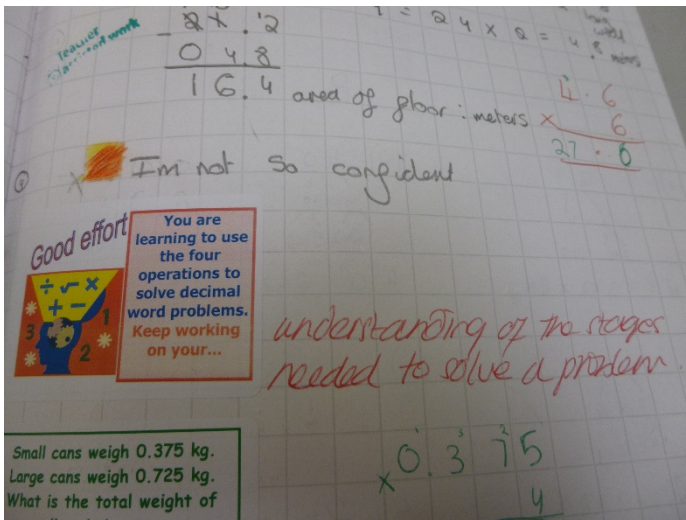 Teacher
assisted work
2 4 x 2 = 4.8 meters
2 1 . 2
- 0 4.8
1 6.4 area of gloor : meters
4.6
x 6
27.6
Im not so congident
Good effort
You are
learning to use
the four
operations to
solve decimal
word problems.
Keep working
on your...
÷ √ ×
+ −
3 1
2
understanding of the stages
needed to solve a problem.
Small cans weigh 0.375 kg.
Large cans weigh 0.725 kg.
What is the total weight of
0.375
x 4